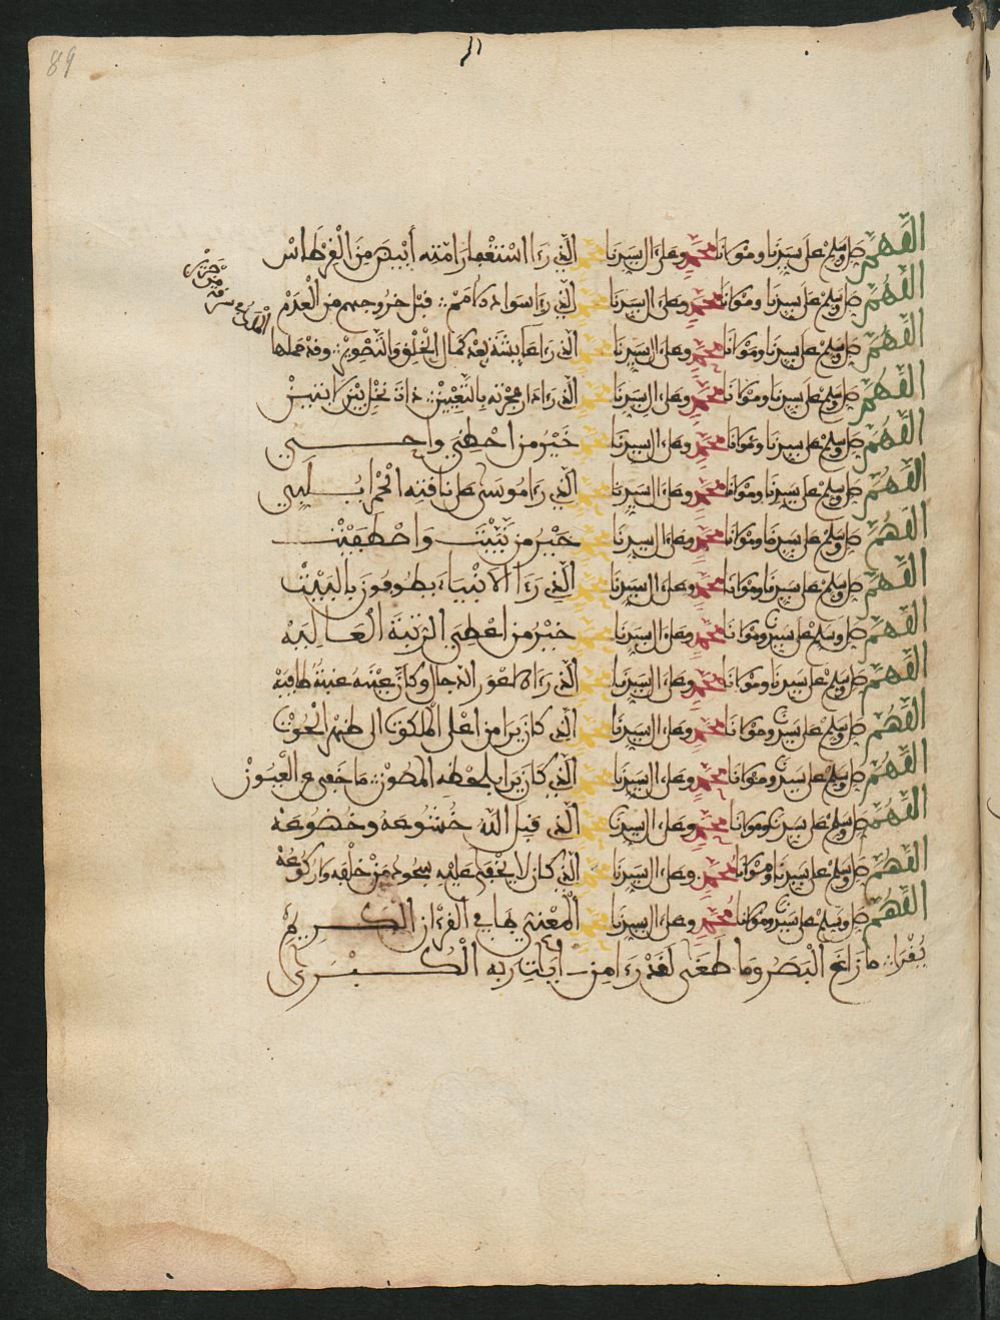 89
اللهم صل وسلم على سيدنا ومولانا محمد وعلى ءال سيدنا محمد الذي رءا استغفار امته أبيض من القرطاس
اللهم صل وسلم على سيدنا ومولانا محمد وعلى ءال سيدنا محمد الذي رءا سواد قبل خروجهم من العدم
اللهم صل وسلم على سيدنا ومولانا محمد وعلى ءال سيدنا محمد الذي رءا عايشة بعد كمال الخلق والتصوير وقد حملها
الملك في سرقة من حرير
اللهم صل وسلم على سيدنا ومولانا محمد وعلى ءال سيدنا محمد الذي رءا دار هجرته بالتعيين ذات نخل بين لابتين
اللهم صل وسلم على سيدنا ومولانا محمد وعلى ءال سيدنا محمد خير من اصطفي واجتبي
اللهم صل وسلم على سيدنا ومولانا محمد وعلى ءال سيدنا محمد الذي رءا موسى على ناقته الحمرا يلبي
اللهم صل وسلم على سيدنا ومولانا محمد وعلى ءال سيدنا محمد خير من واصطفيت
اللهم صل وسلم على سيدنا ومولانا محمد وعلى ءال سيدنا محمد الذي رءا الانبياء يطوفون بالبيت
اللهم صل وسلم على سيدنا ومولانا محمد وعلى ءال سيدنا محمد خير من اعطي الرتبة العالية
اللهم صل وسلم على سيدنا ومولانا محمد وعلى ءال سيدنا محمد الذي رءا الاعور الدجال وكأن عينه عنبة طافية
اللهم صل وسلم على سيدنا ومولانا محمد وعلى ءال سيدنا محمد الذي كان يرا من اعلى الملكوت الى ظهر الحوت
اللهم صل وسلم على سيدنا ومولانا محمد وعلى ءال سيدنا محمد الذي كان يرا بلحظه المصون ما خفي عن العيون
اللهم صل وسلم على سيدنا ومولانا محمد وعلى ءال سيدنا محمد الذي قبل الله خشوعه وخضوعه
اللهم صل وسلم على سيدنا ومولانا محمد وعلى ءال سيدنا محمد الذي كان لا يخفى عليه سجود من خلفه ولا ركوعه
اللهم صل وسلم على سيدنا ومولانا محمد وعلى ءال سيدنا محمد المعتنى بها في القرءان الكريم
ما زاغ البصر وما طغى لقد رءا من ءايات ربه الكبرى